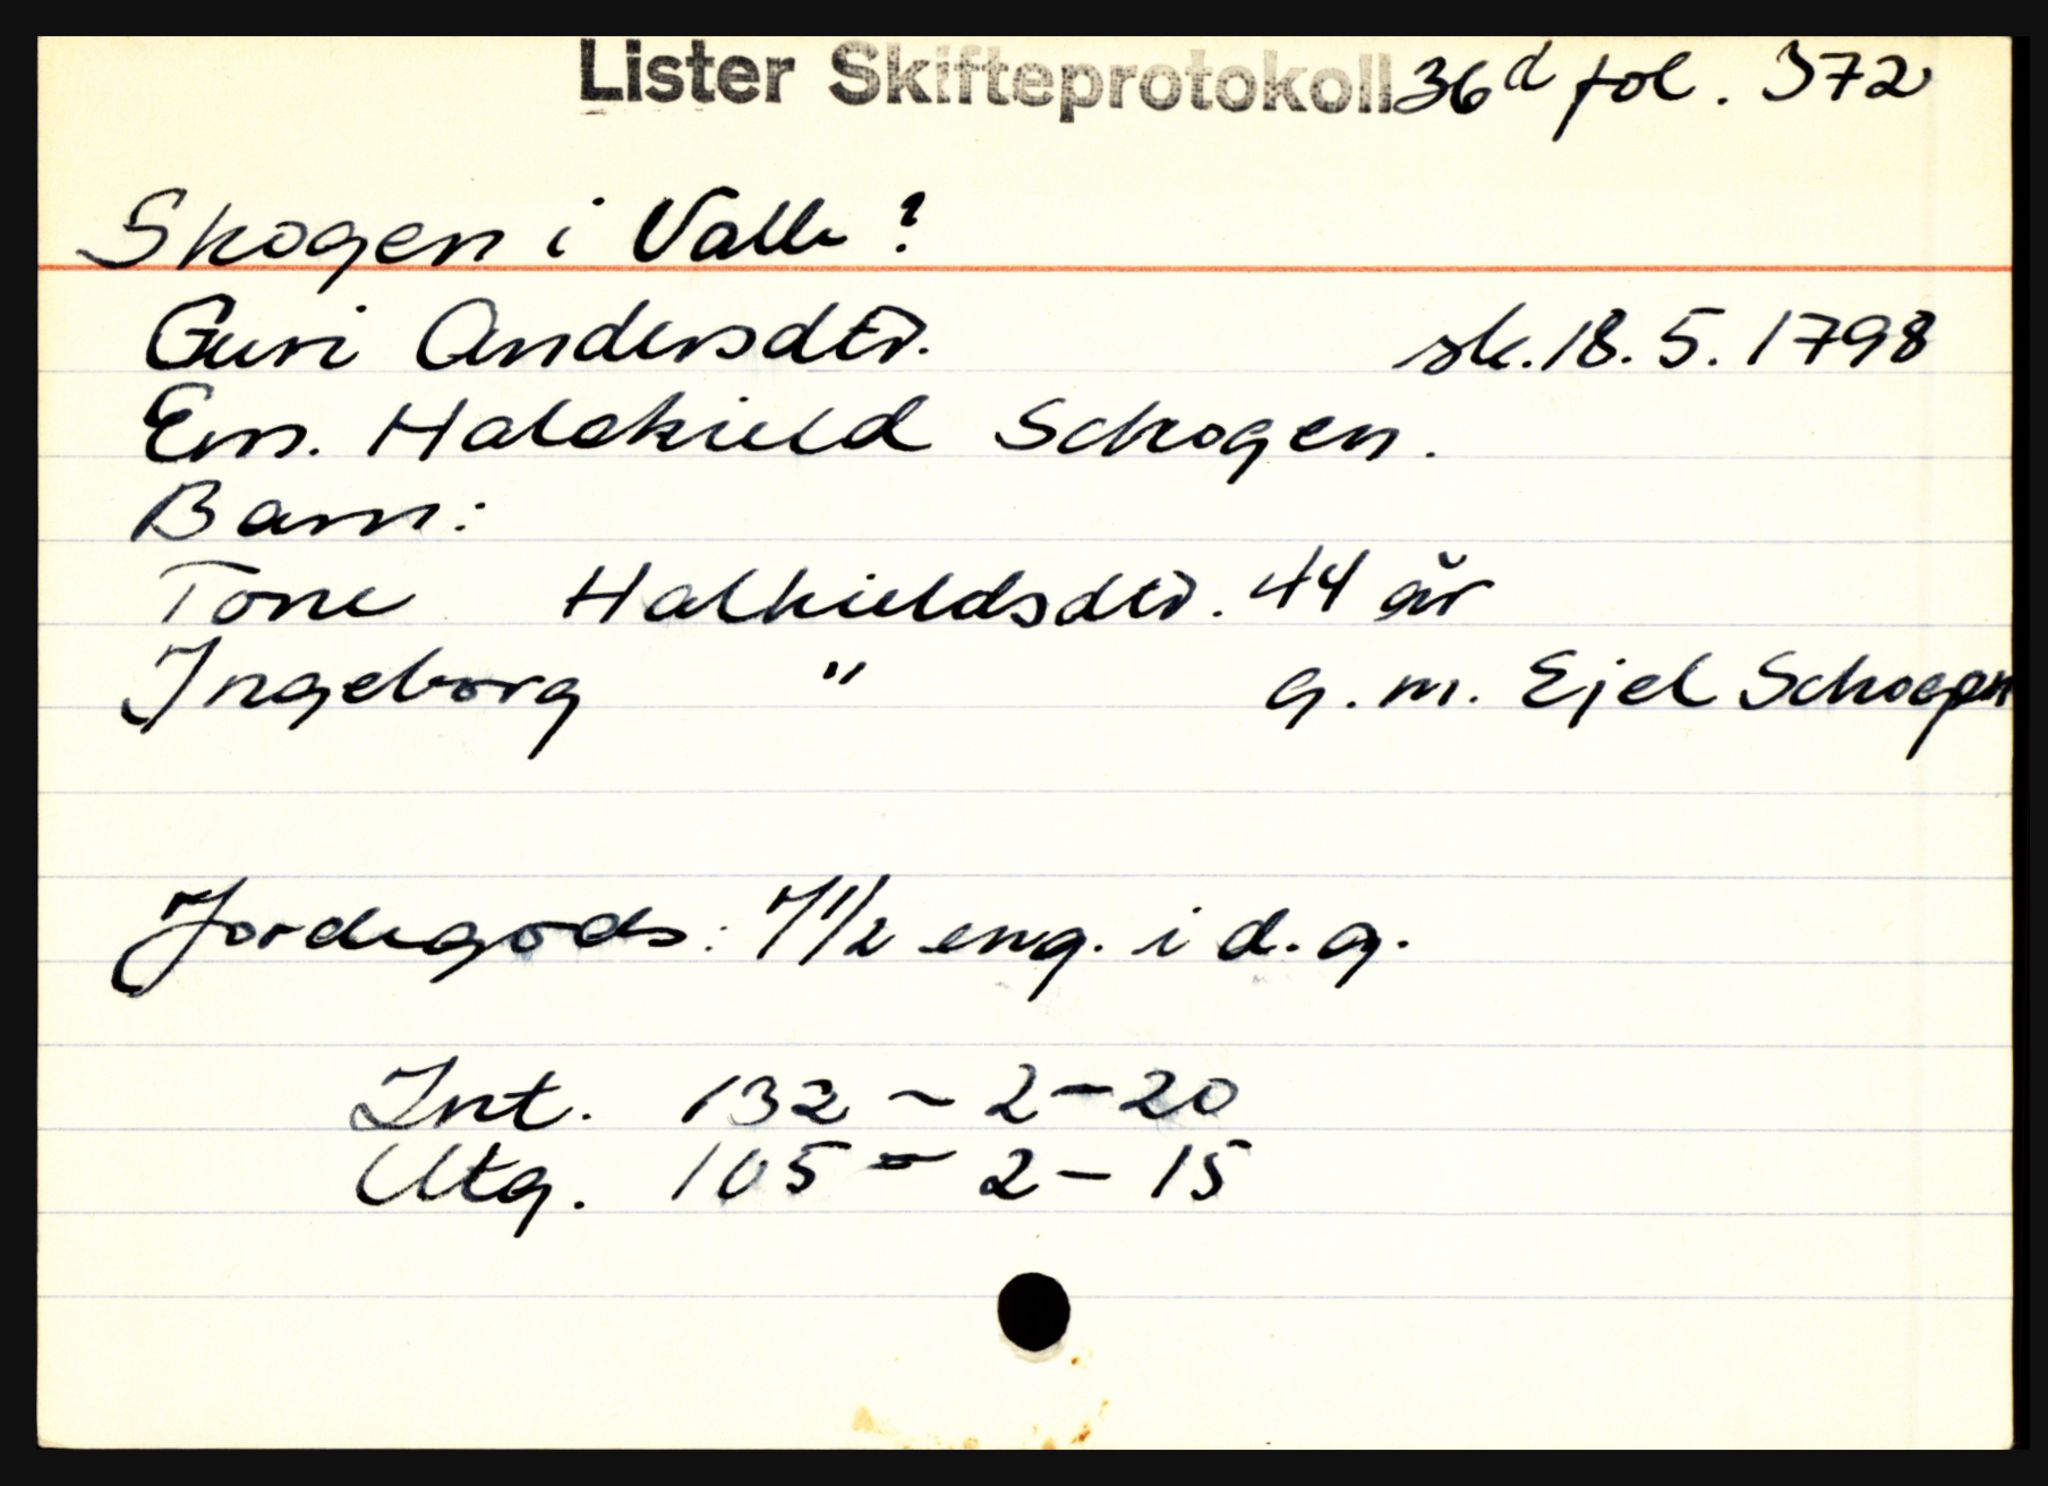 Lister Skifteprotokoll 36d fol. 372
Skogen i Valle?
Guri Andersdtr. sk. 18.5.1798
Em. Halchield Schogen.
Barn:
Tone Halkieldsdtr. 44 år
Ingeborg " g.m. Ejel Schogen
Jordegods: 7 1/2 eng. i d.g.
Int. 132 - 2 - 20
Utg. 105 - 2 - 15